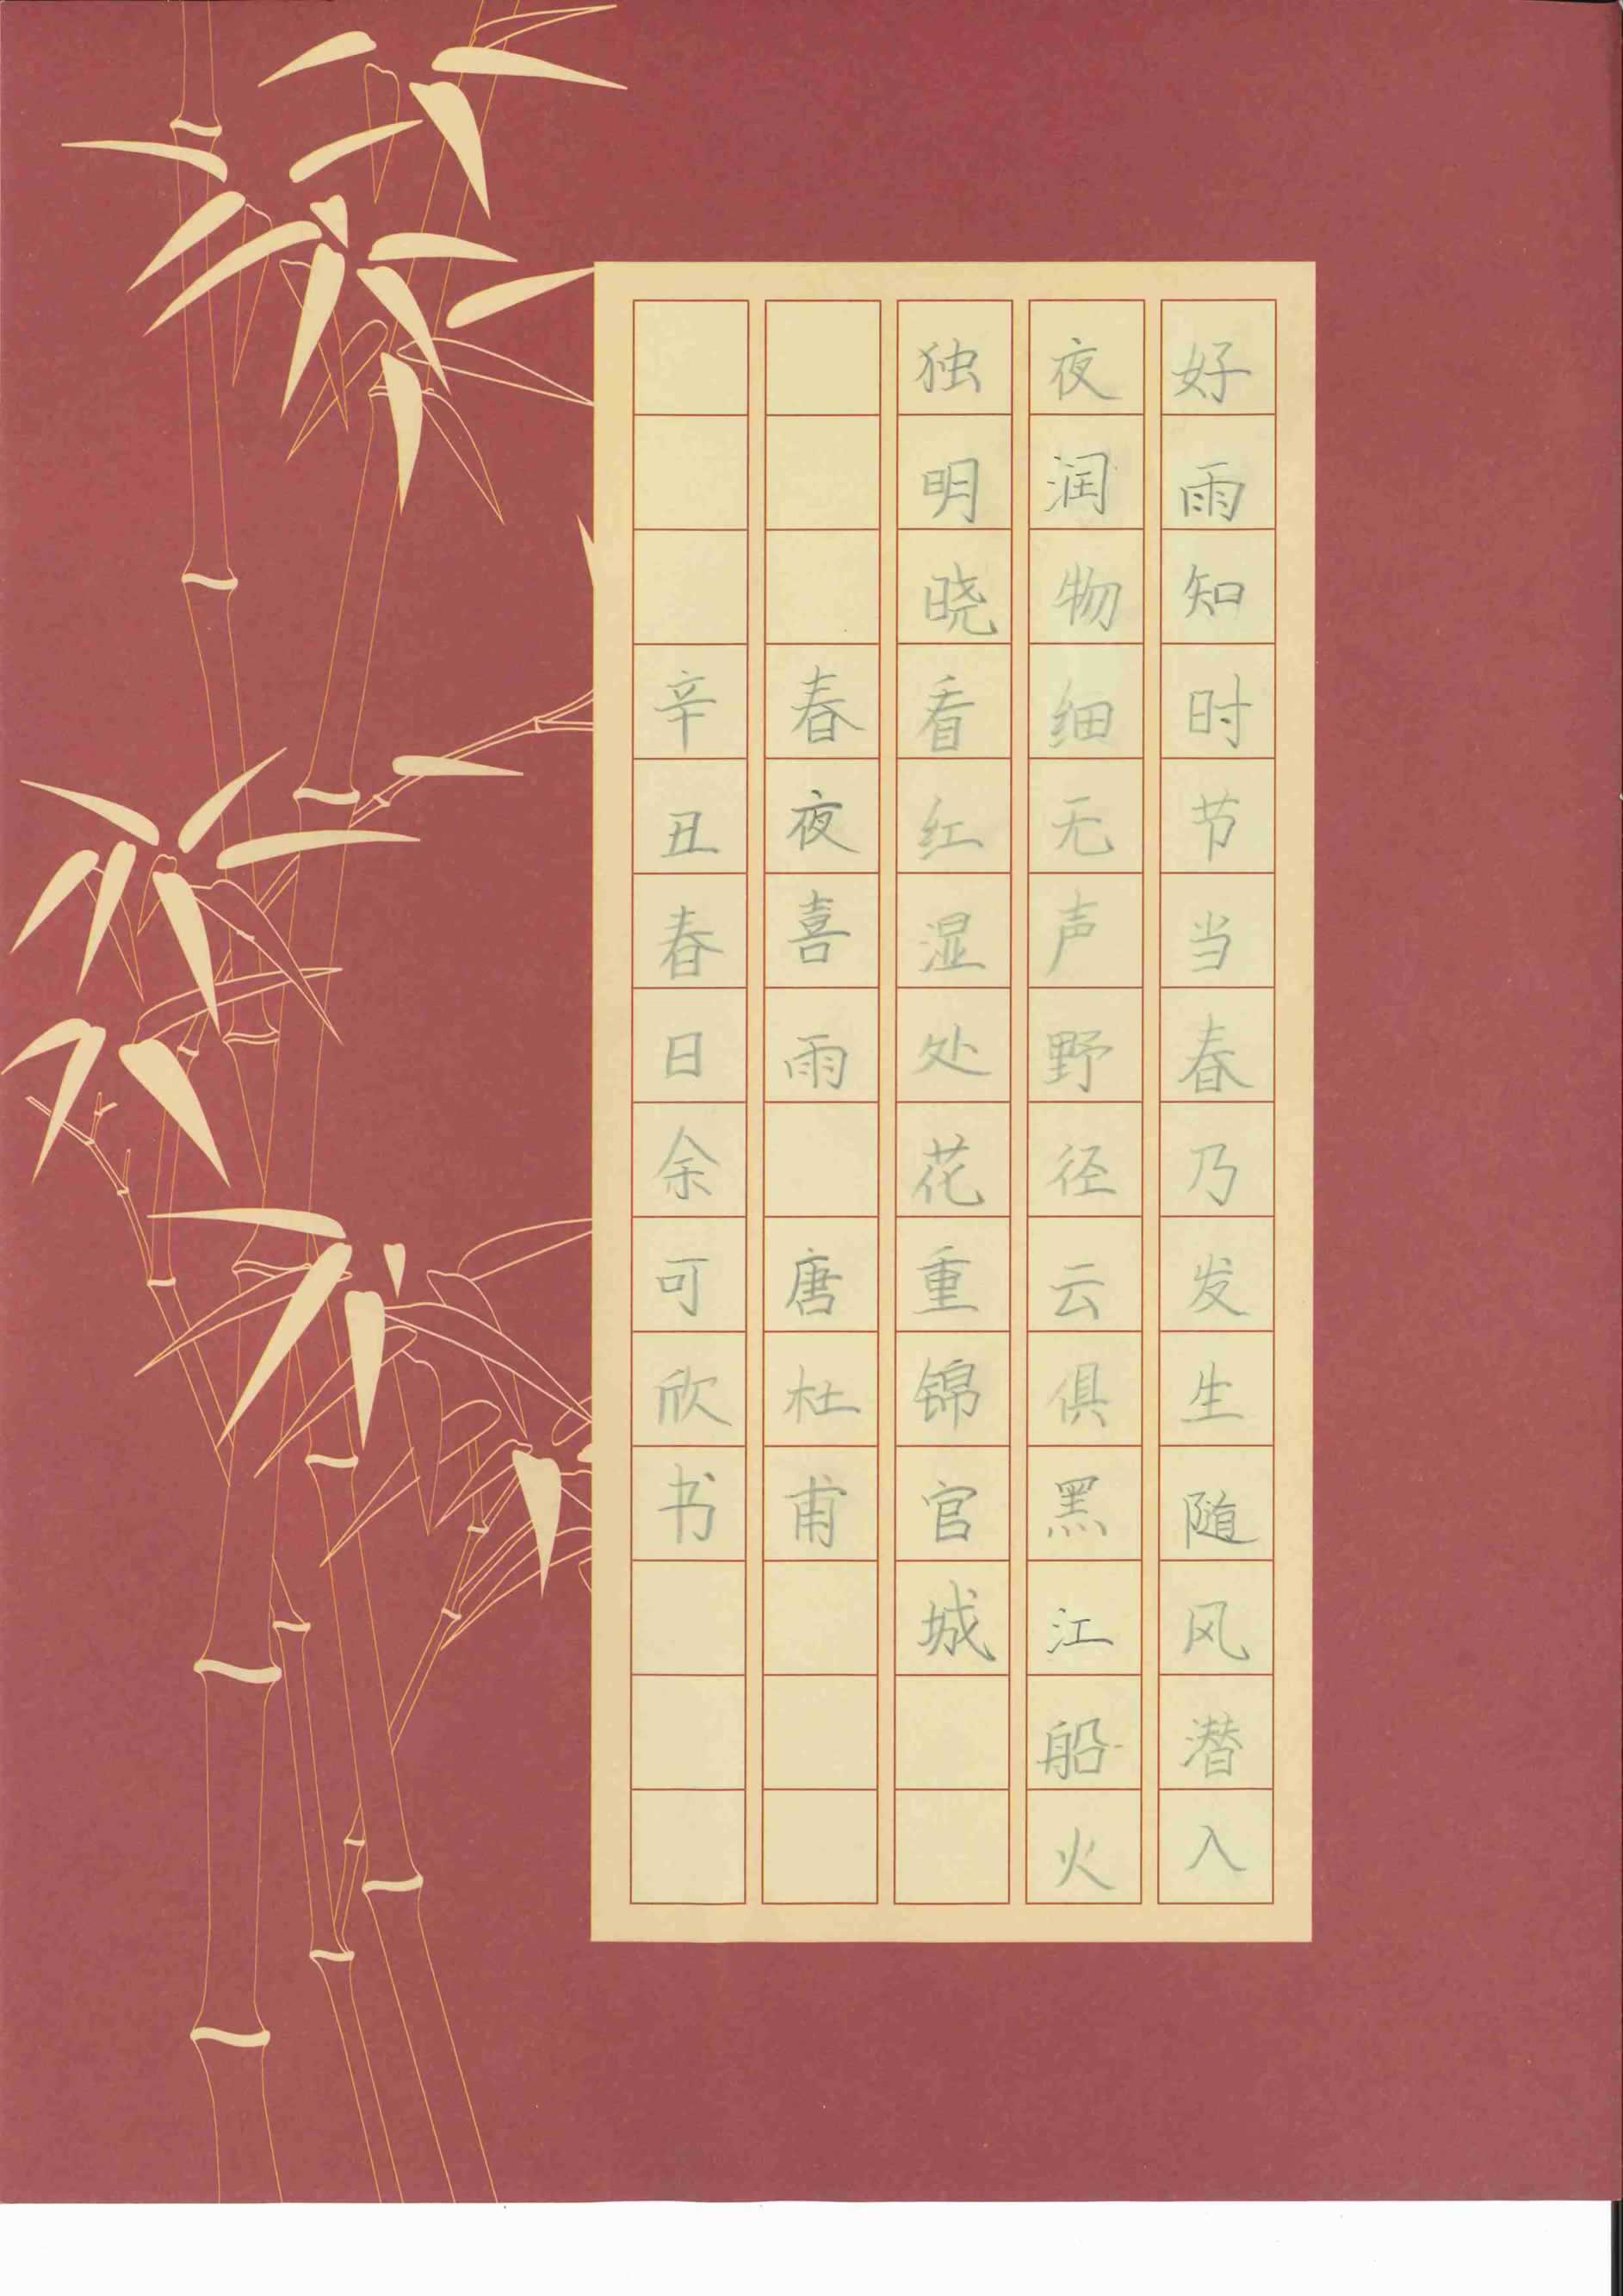 好雨知时节当春乃发生随风潜入
夜润物细无声野径云俱黑江船火
独明晓看红湿处花重锦官城
春夜喜雨 唐杜甫
辛丑春日余可欣书